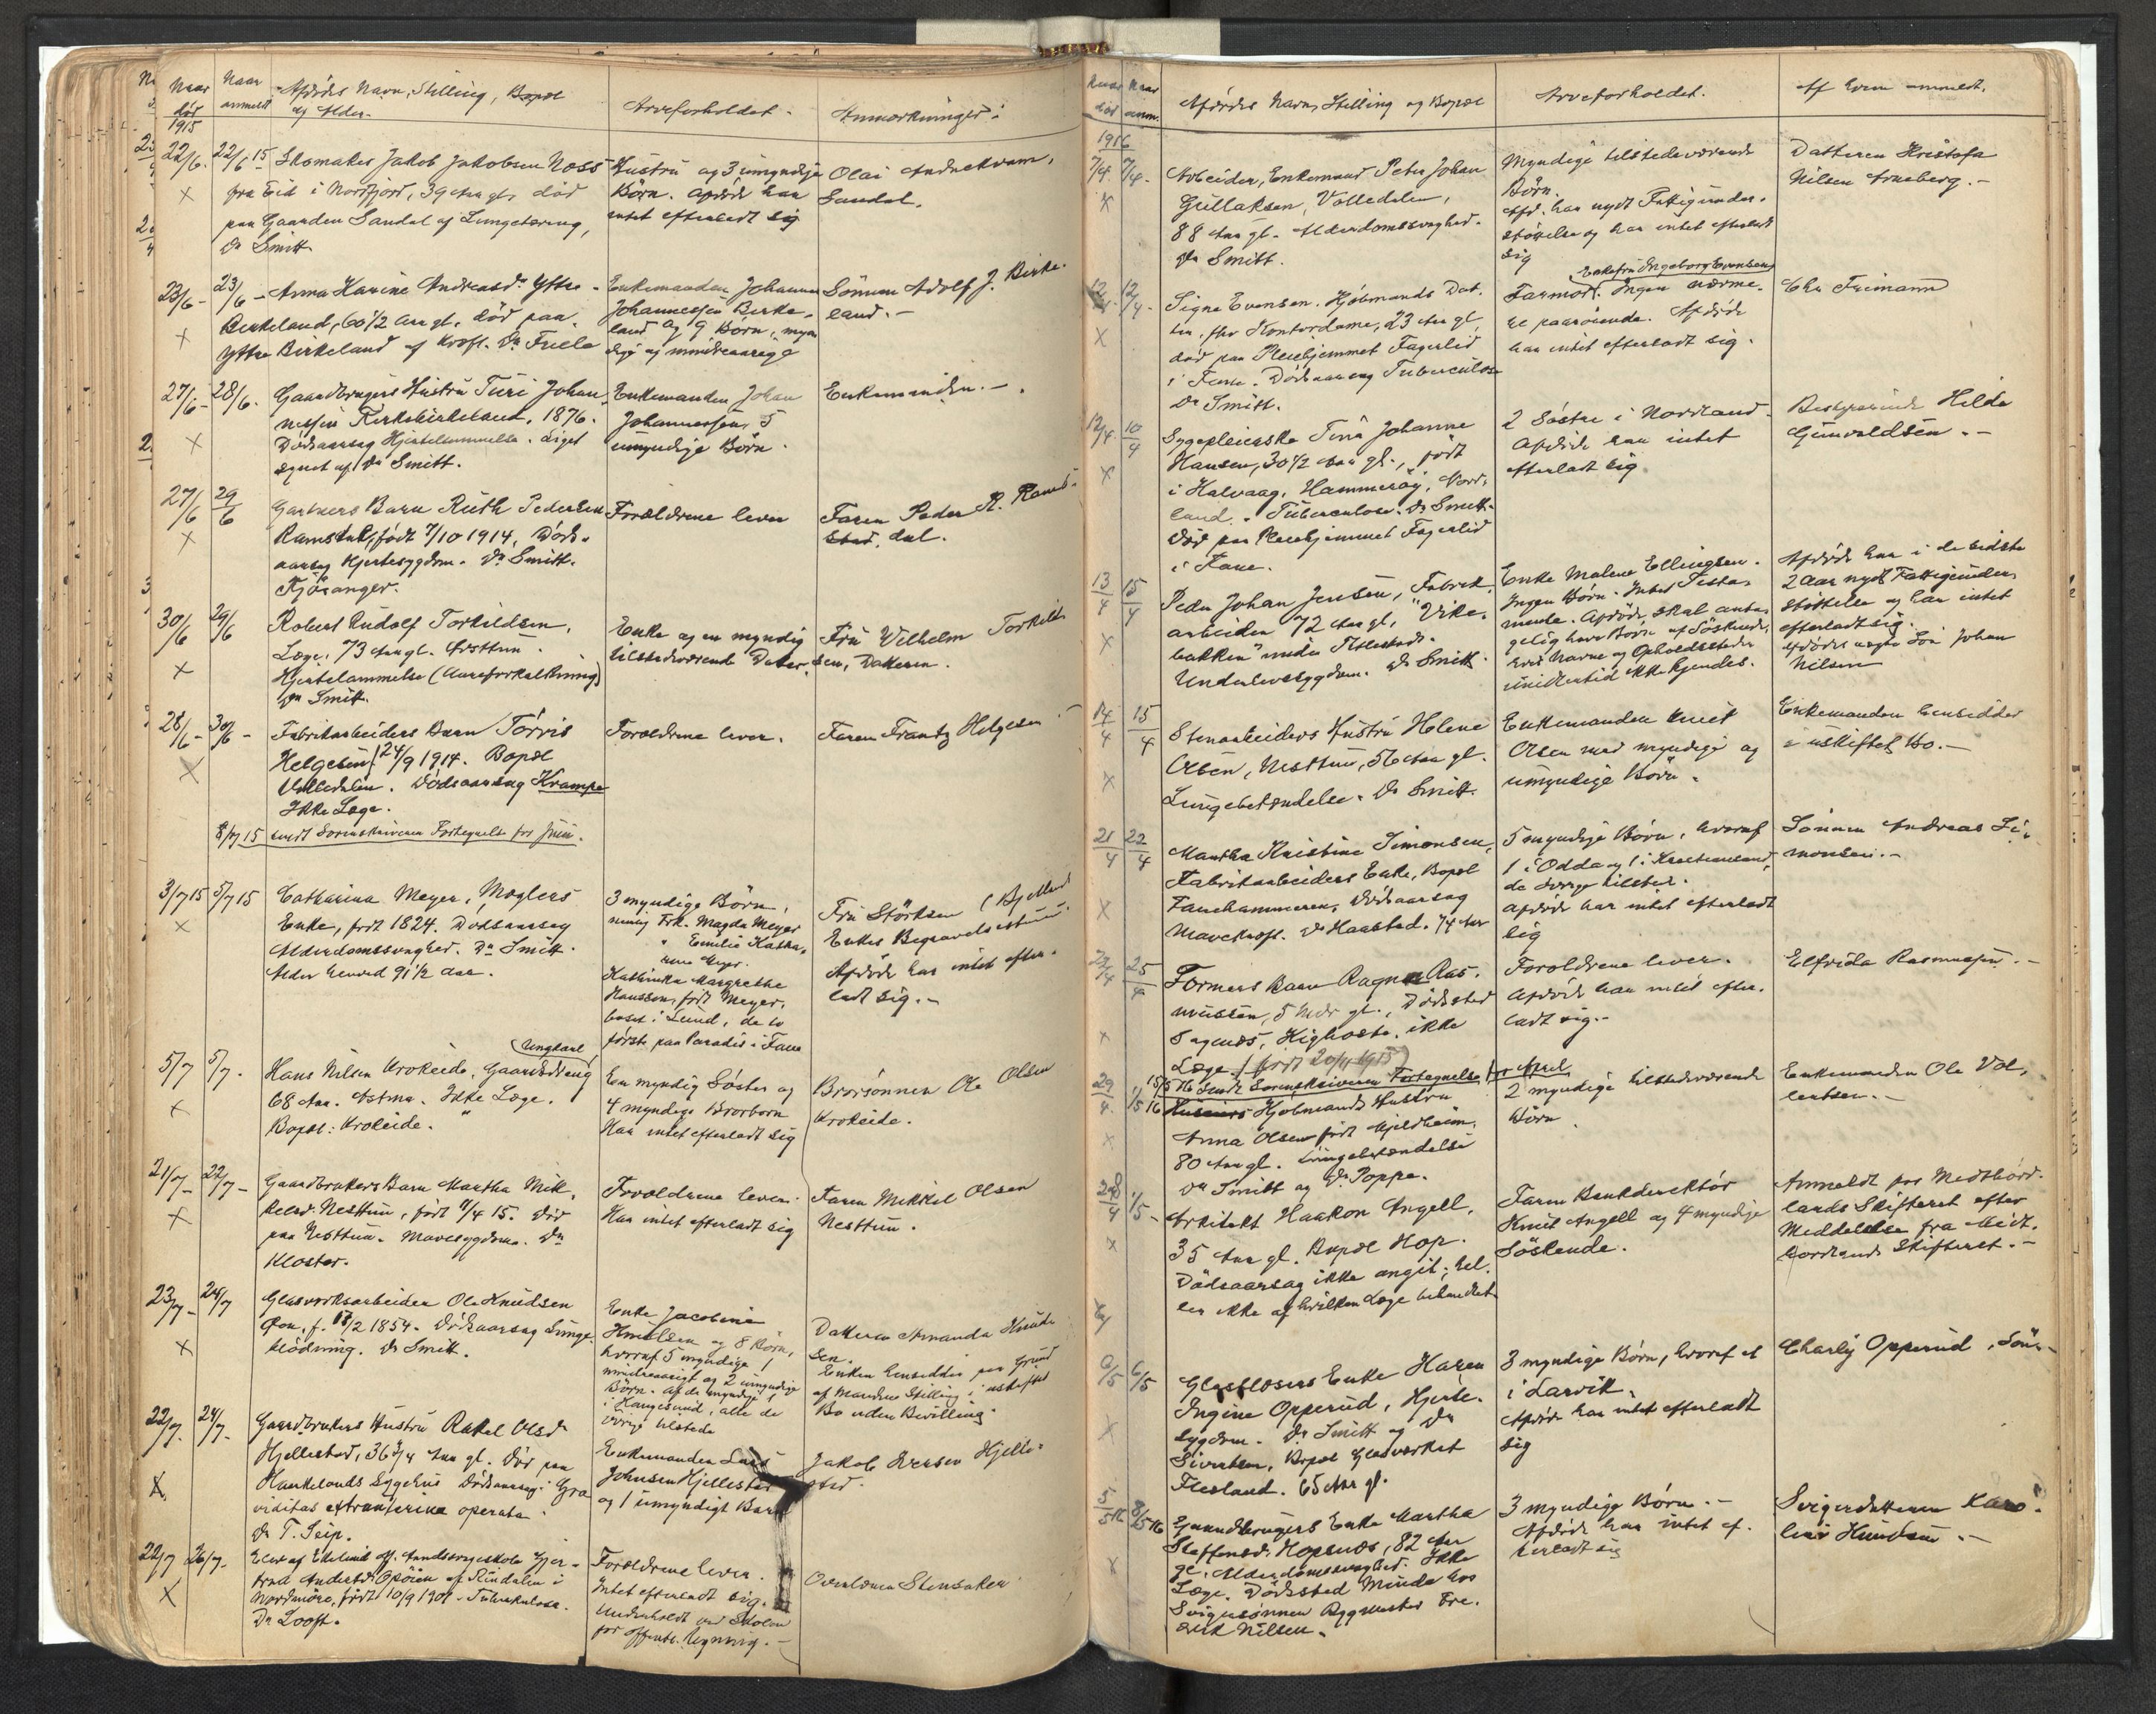 Naar død 1915
Naar anmeldt
Afdødes Navn, Stilling, Bopæl og Alder.
Arveforholdet.
Anmærkninger:
22/6. 22/6 15 Skomaker Jakob Jakobsen Næss
fra Eid i Nordfjord, 39 Aar gl, død
paa Gaarden Sandal af Lungetæring,
Dr Smitt
Hustru og 3 umyndige
Børn. Afdøde har
intet efterladt sig
Olai
Sandal.
23/6 - 23/6 - Anna Karine Andreasdr Ytre-
Birkeland, 60 1/2 Aar gl. død paa
Ytre Birkeland af Kræft. Dr Friele
Enkemanden Johannes
Johannessen Birke-
land og 9 Børn, myn-
dige og mindreaarige
Sønnen Adolf J. Birke-
land.-
27/6 - 28/6. Gaardbrugers Hustru Turi Johan-
nessen Kirkebirkeland, 1876.
Dødsaarsag Hjertelammelse. Liget
synet af Dr Smitt.
Enkemanden Johan
Johannessen, 5
umyndige Børn.
Enkemanden.-
27/6 29/6 Gartners Barn Ruth Pedersen
Ramstad, født 7/10 1914, Døds-
aarsag Hjertesygdom. Dr Smitt.
Fjøsanger.
Forældrene lever
Faren Peder R. Ram-
stad, dal.
30/6 29/6 Robert Rudolf Torkildsen,
Læge, 73 Aar gl. Nesttun.
Hjertelammelse (Aareforkalkning)
Dr Smitt.
Enke og en myndig
tilstedeværende Datter.
Fru Wilhelm Torkild-
sen, Datteren.
28/6 - 30/6 - Fabrikarbeiders Barn Torvis
Helgesen f. 24/9 1914. Bopæl
Valledalen. Dødsaarsag Krampe
Ikke Læge.
Forældrene lever.
Faren Frantz Helgesen
8/7 15 sendt Sorenskriveren Fortegnelse for Juni.
3/7 15 5/7 15 Catharina Meyer, Møglers
Enke, født 1824. Dødsaarsag
Alderdomssvaghed. Dr Smitt.
Alder herved 91 1/2 Aar.
3 myndige Børn,
nemlig Frk. Magda Meyer
" Emilie Katha-
rine Meyer.
Kathinka Margrethe
Hanssen, født Meyer,
bosat i Lund, de to
første paa Paradis i Fane
Fru Störksen (Bjelland
Enkes Begravelsesbureau.
Afdøde har intet efter-
ladt sig.-
5/7 5/7. Hans Nilsen Krokeide, Gaardsdreng (Ungkarl
68 Aar. Astma. Ikke Læge.
Bopæl: Krokeide.
En myndig Søster og
4 myndige Brorbørn
Har intet efterladt sig
Brorsønnen Ole Olsen
Krokeide.
21/7 - 22/7 - Gaardbrukers Barn Martha Mik-
kelsd. Nesttun, født 11/4 15. Død
paa Nesttun. Mavesygdom. Dr
Kloster.
Forældrene lever.
Har intet efterladt sig
Faren Mikkel Olsen
Nesttun.
23/7 - 24/7 Glasværksarbeider Ole Knudsen
f. 13/2 1854. Dødsaarsag Lunge-
blødning. Dr Smitt.
Enke Jacobine
Knudsen og 8 Børn,
hvoraf 5 myndige 1
mindreaarigt og 2 umyndige
Børn. Af de myndige 1
i Haugesund, alle de
øvrige tilstede
Datteren Amanda Knud-
sen.
Enken hensidder paa Grund
af Mandens Stilling i uskiftet
Bo uden Bevilling.
22/7. 24/7. Gaardbrukers Hustru Rakel Olsd.
Hjellestad, 36 3/4 Aar gl. Død paa
Haukelands Sygehus Dødsaarsag: Gra
viditas extrauterina operata.
Dr T. Seip.
Enkemanden Lars
Johnsen Hjellestad
og 1 umyndigt Barn
Jakob Iversen Hjelle-
stad.
22/7 26/7. Elev af off. Aandssvageskole Gjer-
trud Andersdr af Rindalen i
Nordmøre, født 10/9 1901. Tuberkulose.
Dr Looft.
Forældrene lever.
Intet efterladt sig.
Underholdt ved Skolen
for offentl. Regning.-
Overlærer Stensaker
Naar død
Naar anm.
Afdødes Navn, Stilling og Bopæl
Arveforholdet.
Af hvem anmeldt.
1916
7/4. 7/4. Arbeider, Enkemand Peter Johan
Gullaksen, Valledalen,
88 Aar gl. Alderdomssvaghed.
Dr Smitt.
Myndige tilstedeværende
Børn.
Afd. har nydt Fattigunder-
støttelse og har intet efterladt
sig
Datteren Kristofa
Nilsen Arneberg.-
12/4. 12/4. Signe Evensen, Kjøbmands Dat-
ter, fhv Kontordame, 23 Aar gl,
død paa Pleiehjemmet Fagerlid
i Fane. Dødsaarsag Tuberculose
Dr Smitt.
Enkefru Ingeborg Evensen
Farmor. Ingen nærme-
re paarørende. Afdøde
har intet efterladt sig.
Chr Frimann
12/4. 10/4 Sygepleierske Tina Johanne
Hansen, 30 1/2 Aar gl., født
i Kalvaag, Hammerøy, Nord-
land. Tuberculose. Dr Smitt.
Død paa Pleiehjemmet Fagerlid
i Fane.
2 Søstre i Nordland.
Afdøde har intet
efterladt sig.
Bestyrerinde Hilda
Gunvaldsen.-
13/4 15/4 Peder Johan Jensen, Fabrik-
arbeider 72 Aar gl, "Vike-
bakken" under
Underlivssygdom. Dr Smitt.
Enke Malene Ellingsen.
Ingen Børn. Intet Testa-
mente. Afdøde skal anta-
gelig have Børn af Søskende,
hvis Navne og Opholdssteder
imidlertid ikke kjendes.
Afdøde har i de sidste
2 Aar nydt Fattigunder-
støttelse og har intet
efterladt sig.
Afdødes Søn Johan
Nilsen
14/4 15/4 Stenarbeiders Hustru Helene
Olsen, Nesttun, 56 Aar gl.
Lungebetændelse. Dr Smitt.
Enkemanden Knut
Olsen med myndige og
umyndige Børn.
Enkemanden hensidder
i uskiftet Bo.-
21/4 22/4 Martha Kristine Simonsen,
Fabrikarbeiders Enke, Bopæl
Fanehammeren, Dødsaarsag
Mavekræft. Dr Haastad. 74 Aar
5 myndige Børn, hvoraf
1 i Odda og 1 i Kristiansand,
de øvrige tilsted.
Afdøde har intet efterladt
sig
Sønnen Andreas Si-
monsen.-
23/4 25/4 Formers Barn Ragna Ras-
mussen, 5 Mdr gl., Dødssted
Søgnes, Kighoste, ikke
Læge. (født 20/11 1915)
Forældrene lever.
Afdøde har intet efter-
ladt sig.-
Elfrida Rasmussen.-
15/5 16 Sendt Sorenskriveren Fortegnelse for April
29/4. 1/5 16 Husmors Kjøbmands Hustru
Anna Olsen født Mjeldheim,
80 Aar gl. Lungebetændelse
Dr Smitt og Dr Poppe.
2 myndige tilstedeværende
Børn.
Enkemanden Ole Val-
lentsen.-
28/4 1/5 - Arkitekt Haakon Angell,
35 Aar gl. Bopæl Hop.
Dødsaarsag ikke angit, hel-
ler ikke af hvilken Læge behandlet
Faren Bankdirektør
Knut Angell og 4 myndige
Søskende.
Anmeldt fra Midthord-
lands Skifteret efter
Meddelelse fra Midt-
hordlands Skifteret.-
6/5 6/5 Glasblåsers Enke Karen
Ingine Opperud, Hjerte-
sygdom. Dr Smitt og Dr
Sivertsen. Bopæl Glasværket
Flesland. 65 Aar gl.
3 myndige Børn, hvoraf et
i Larvik.
Afdøde har intet efterladt
sig
Charly Opperud, Søn.-
5/5 16 8/5 16 Gaardbrugers Enke Martha
Steffensd. Hopsnæs, 82 Aar
gl. Alderdomssvaghed. Ikke
Læge. Dødssted Minde hos
Svigersønnen Bygmester Fre-
drik Nilsen.
3 myndige Børn.-
Afdøde har intet ef-
terladt sig
Svigerdatteren Karo-
line Knudsen.-